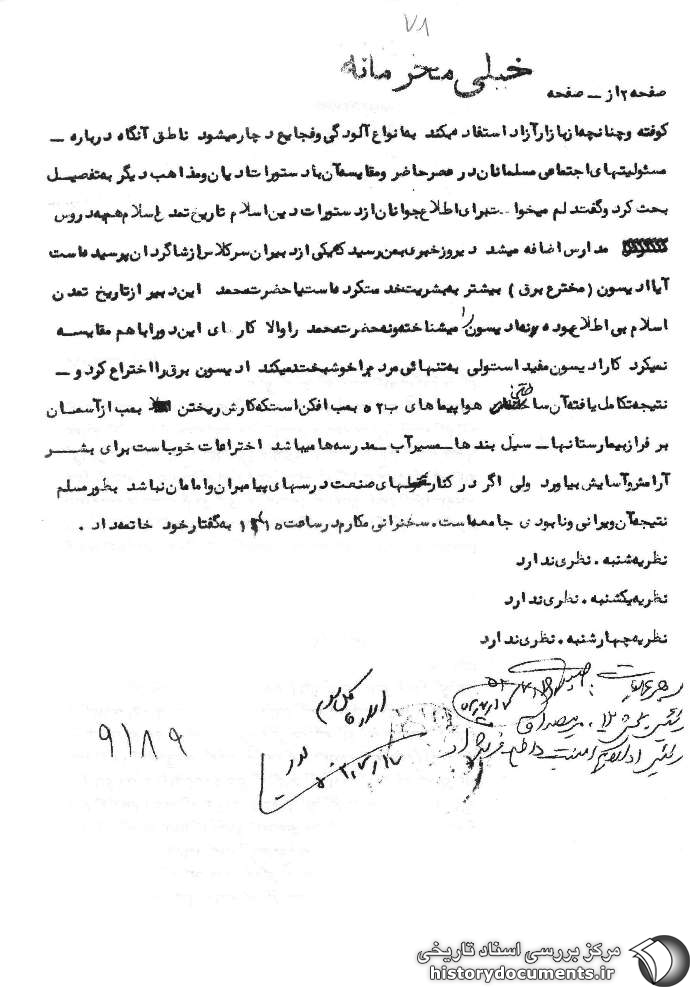 ۷۸
خیلی محرمانه
صفحه ۲ از ــ صفحه
کوفته و چنانچه از بازار آزاد استفاد میکند بانواع آلودگی و فجایع دچار میشود ناطق آنگاه درباره ــ
مسئولیتهای اجتماعی مسلمانان در عصر حاضر و مقایسه آن با دستورات ادیان و مذاهب دیگر به تفصیل
بحث کرد و گفت دلم میخواست برای اطلاع جوانان از دستورات دین اسلام تاریخ تمدن اسلام هم به دروس
مدارس اضافه میشد دیروز خبری بمن رسید که یکی از دبیران سر کلاس از شاگردان پرسیده است
آیا ادیسون (مخترع برق) بیشتر به بشریت خدمت کرده است یا حضرت محمد این دبیر از تاریخ تمدن
اسلام بی اطلاع بوده و نه ادیسون را میشناخته و نه حضرت محمد را والا کارهای این دو را با هم مقایسه
نمیکرد کار ادیسون مفید است ولی به تنهائی مردم را خوشبخت نمیکند ادیسون برق را اختراع کرد و ــ
نتیجه تکامل یافته آن ساختن هواپیماهای ب ۵۲ بمب افکن است که کارش ریختن بمب از آسمان
بر فراز بیمارستانها ــ سیل بندها ــ مسیر آب ــ مدرسه ها میباشد اختراعات خوب است برای بشر
آرامش و آسایش بیاورد ولی اگر در کنار صنعت درسهای پیامبران و امامان نباشد بطور مسلم
نتیجه آن ویرانی و نابودی جامعه است. سخنرانی مکارم در ساعت به گفتار خود خاتمه داد.
نظریه شنبه. نظری ندارد
نظریه یکشنبه. نظری ندارد
نظریه چهارشنبه. نظری ندارد
رهبر عملیات:
رئیس بخش ۱۲.
رئیس اداره امنیت داخلی
۹۱۸۹
مرکز بررسی اسناد تاریخی
historydocuments.ir